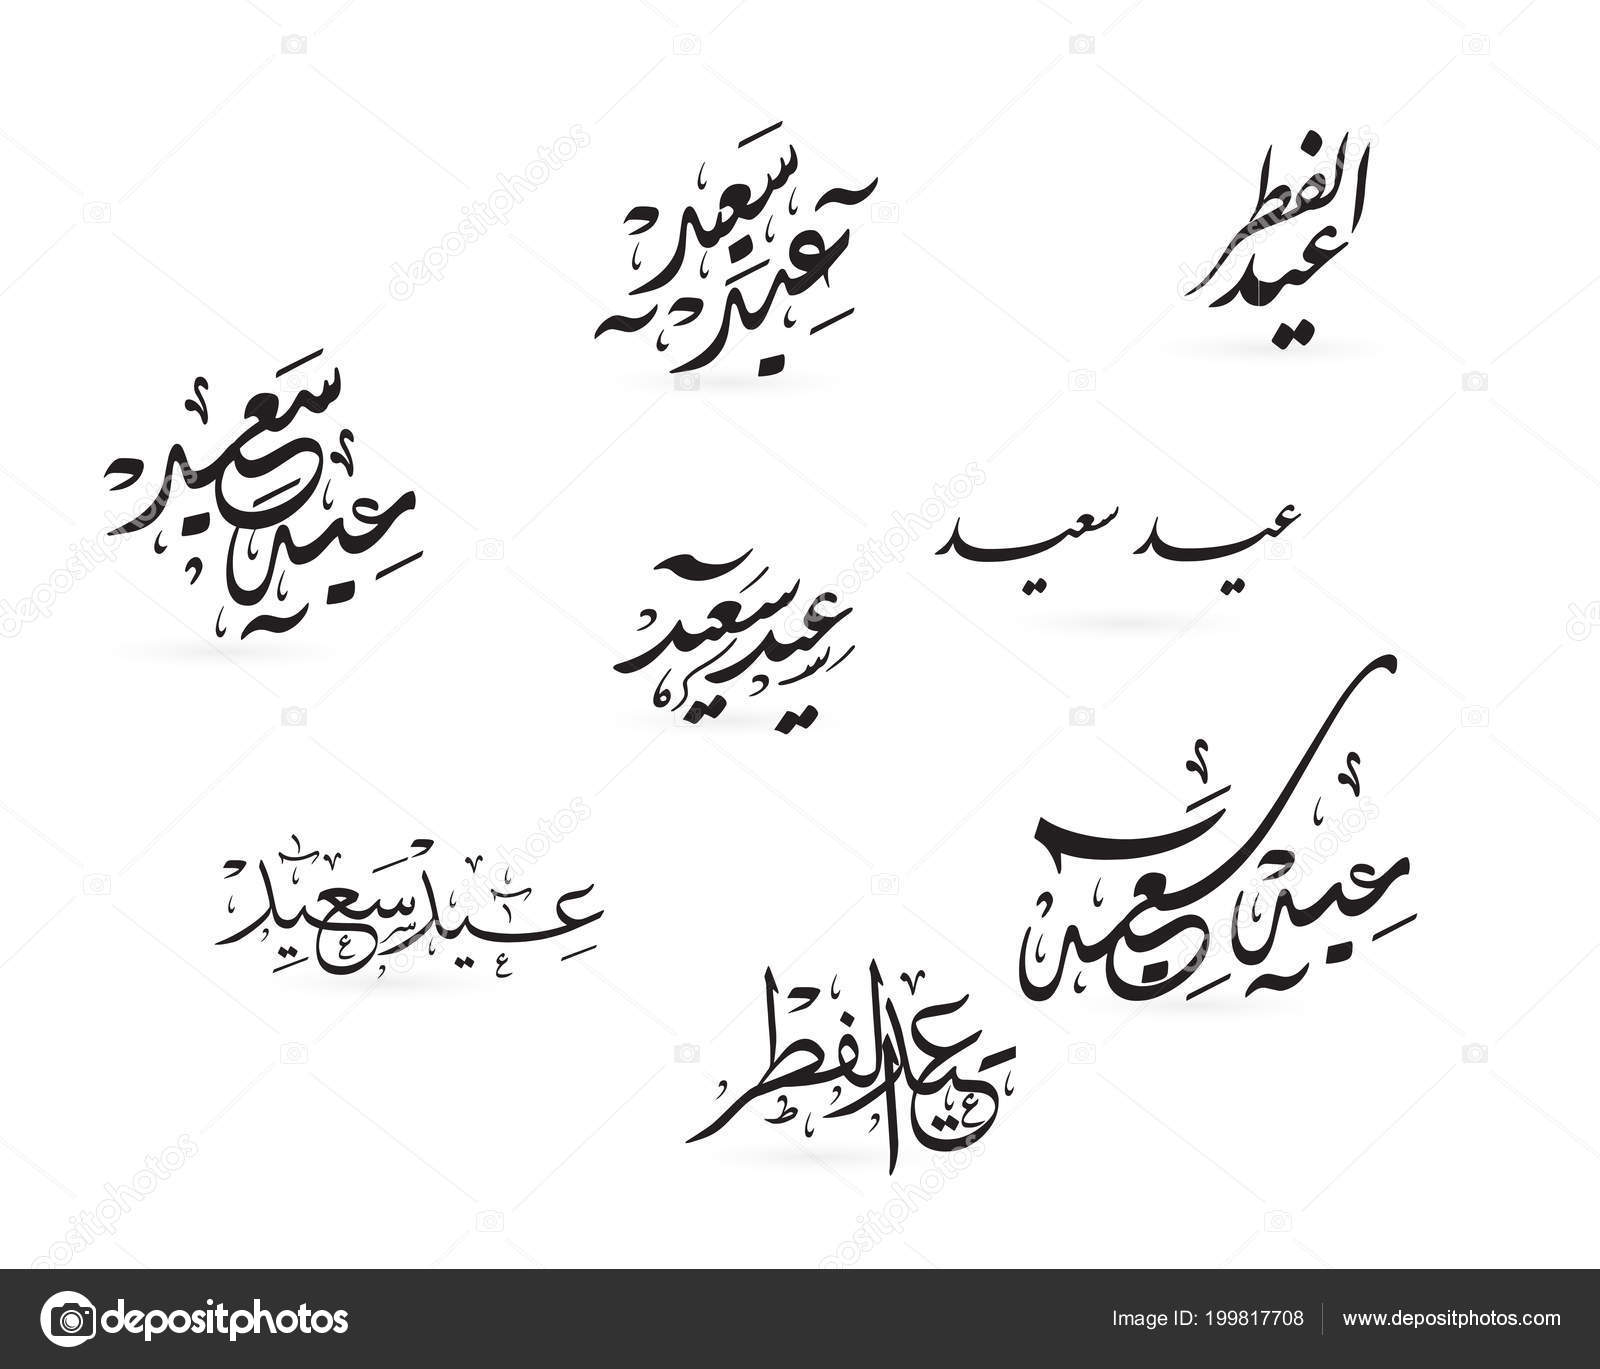 سعيد
عيد
الفطر
عيد
سعيد
عيد
عيد سعيد
عيد سعيد
عيد سعيد
عيد سعيد
عيد الفطر
depositphotos
Image ID: 199817708
www.depositphotos.com